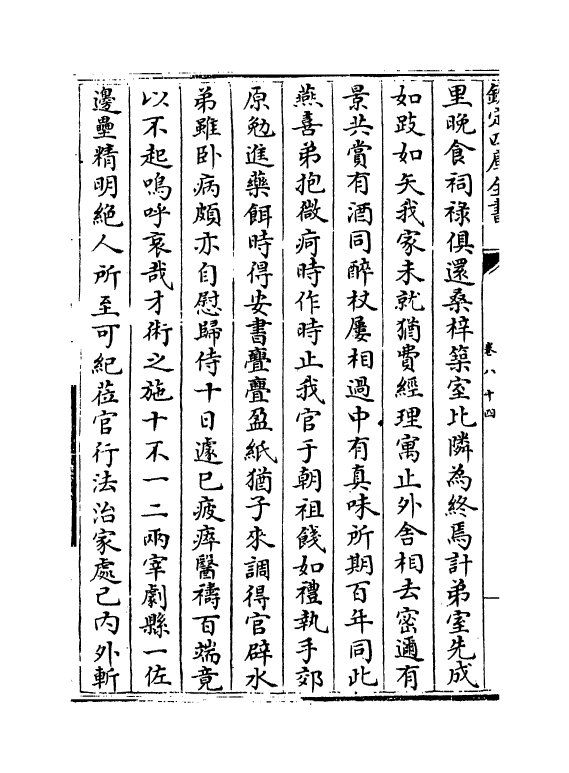 欽定四庫全書
卷八十四
里晚食祠祿俱還桑梓築室比隣為終焉計弟室先成
如跂如矢我家未就猶費經理寓止外舎相去密邇有
景共賞有酒同醉杖屨相過中有真味所期百年同此
燕喜弟抱微疴時作時止我官于朝祖餞如禮執手郊
原勉進藥餌時得安書亹亹盈紙猶子來調得官辟水
弟雖卧病頗亦自慰歸侍十日遽已疲瘁醫禱百端竟
以不起嗚呼哀哉才術之施十不一二兩宰劇縣一佐
邊壘精明絶人所至可紀莅官行法治家處己内外斬